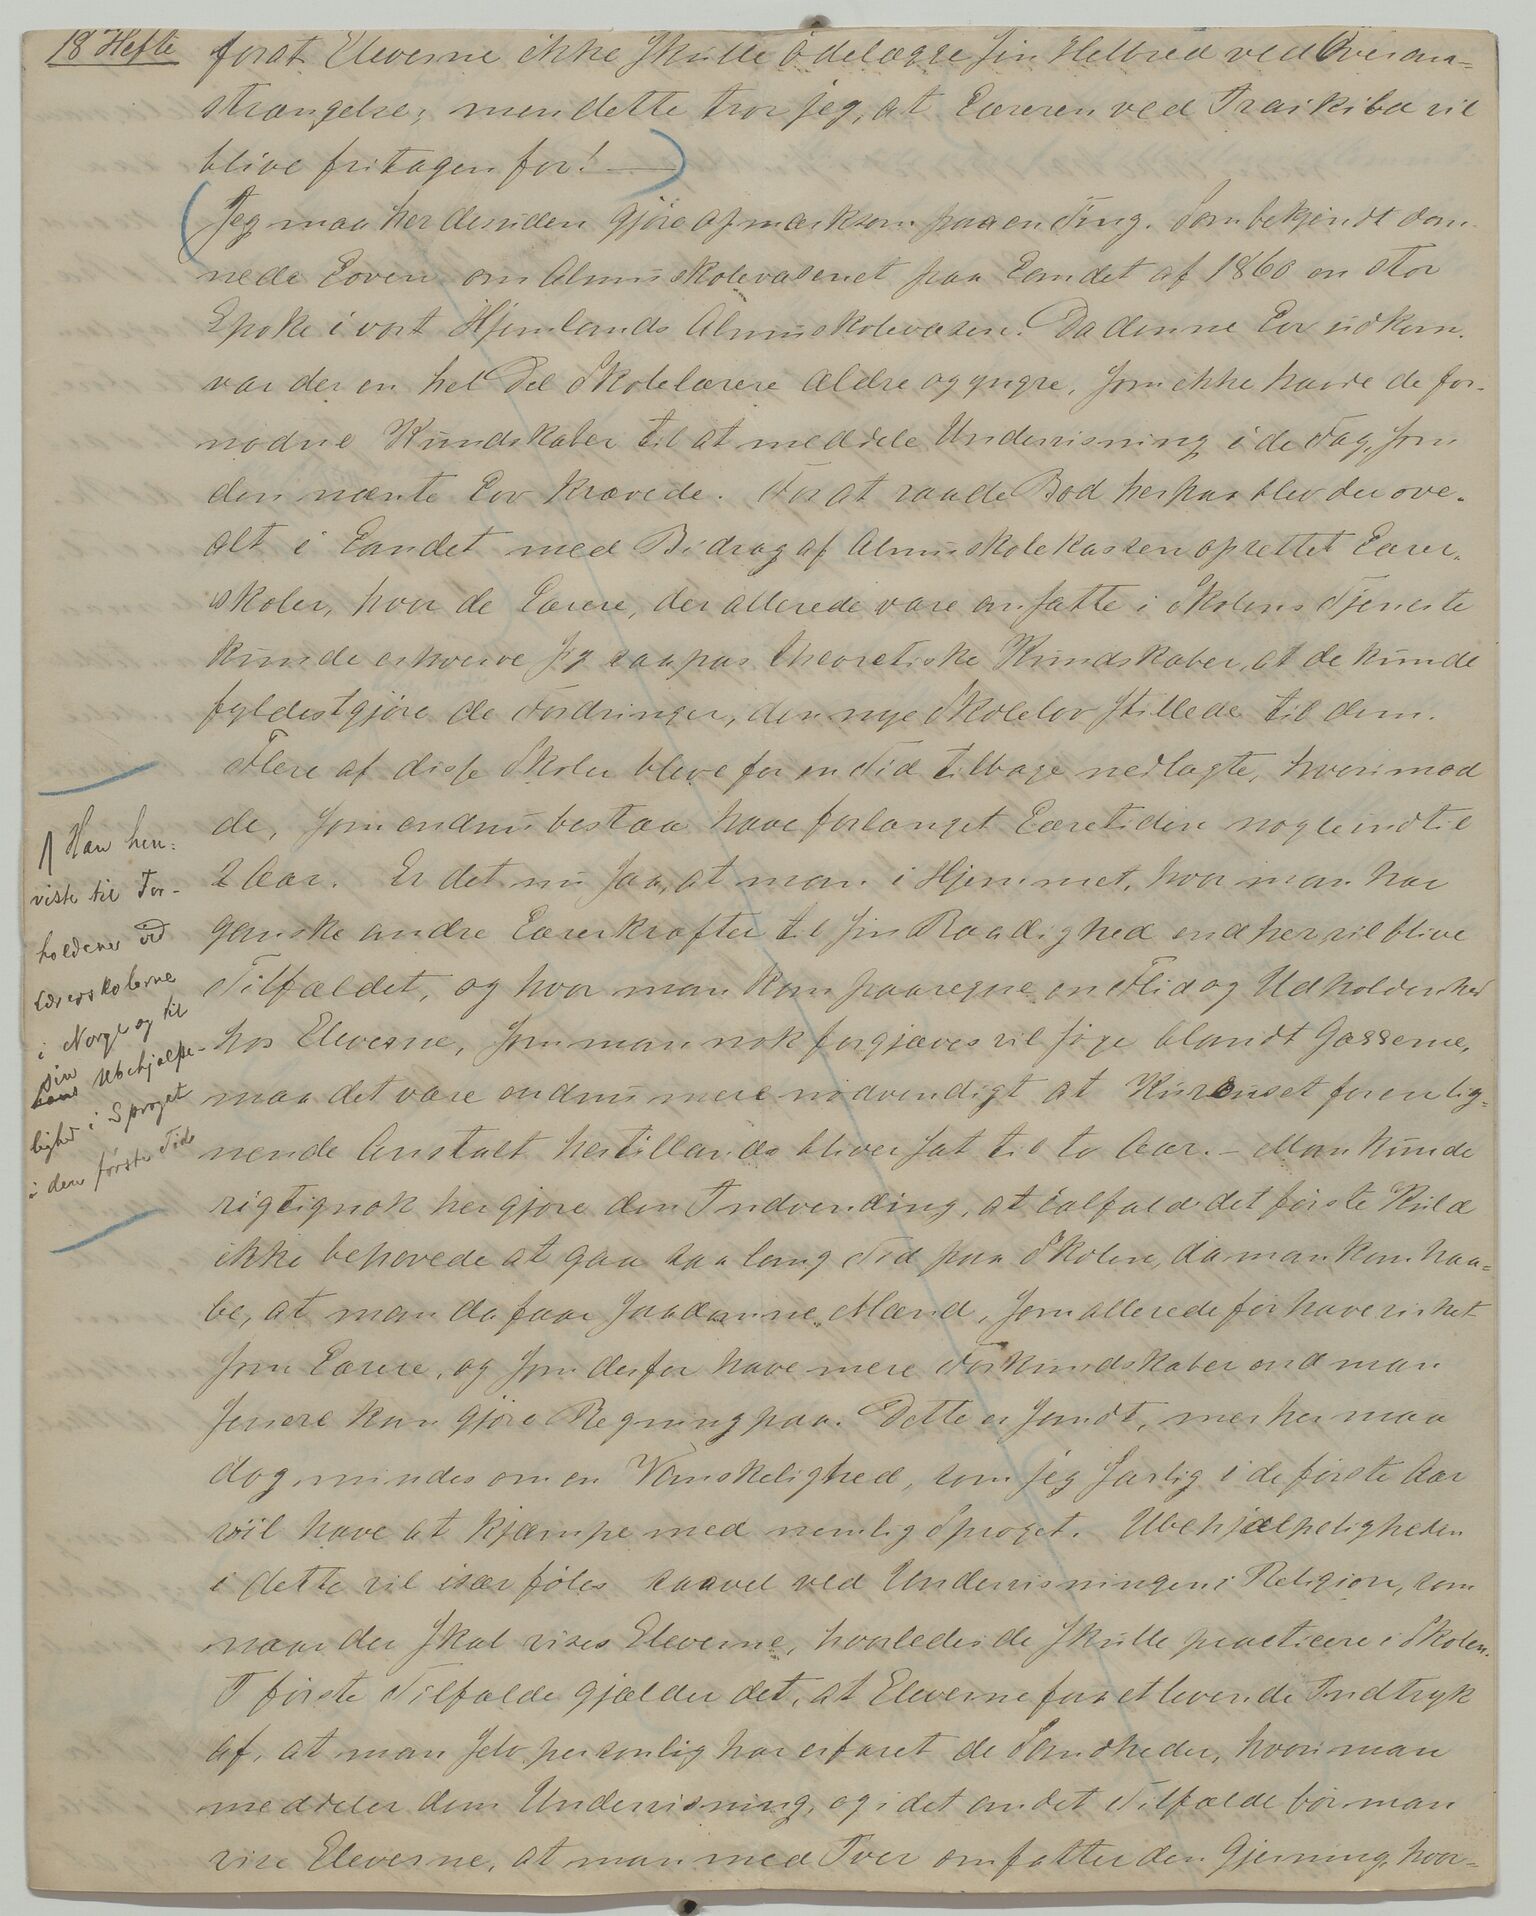 18 Hefte
forat Eleverne ikke skulle ødelægge sin Helbred ved Overan-
strængelse; men dette tror jeg, at Læreren ved Traikiba vil
blive fritagen for! —
Jeg maa her desuden gjøre opmærksom paa en Ting. Som bekjendt dan-
nede Loven om Almuskolevæsenet paa Landet af 1860 en stor
Epoke i vort Hjemlands Almuskolevæsen. Da denne Lov udkom,
var der en hel Del Skolelærere ældre og yngre, som ikke havde de for-
nødne Kundskaber til at meddele Underrisning i de Fag, som
den nævnte Lov krævede. For at raade Bod herpaa blev der ove-
alt i Landet med Bidrag af Almuskolekassen oprettet Lærer-
skoler, hvor de Lærere, der allerede vare ansatte i Skolens Tjeneste
kunde erhverve sig saapas theoretiske Kundskaber, at de kunde
fyldestgjøre de Fordringer, den nye Skolelov stillede til dem.
Flere af disse Skoler bleve for en Tid tilbage nedlagte, hvorimod
de, som endnu bestaa have forlænget Læretiden nogle indtil
2 Aar. Er det nu saa, at man i Hjemmet, hvor man har
ganske andre Lærerkræfter til sin Raadighed end her vil blive
Tilfældet, og hvor man kan paaregne en Flid og Udholdenhed
hos Eleverne, som man nok forgjæves vil søge blandt Gasserne,
maa det være endnu mere nødvendigt at Kursuset for en lig-
nende Anstalt hertillands bliver sat til to Aar. – Man kunde
rigtignok her gjøre den Indvending, at ialfald det første Kuld
ikke behøvede at gaa saa lang Tid paa Skolen, da man kan haa-
be, at man da faar saadanne Mænd, som allerede før have virket
som Lærere, og som derfor have mere Forkundskaber end man
senere kan gjøre Regning paa. Dette er sandt, men her maa
dog mindes om en Vanskelighed, som jeg særlig i de første Aar
vil have at kjæmpe med nemlig Sproget. Ubehjælpeligheden
i dette vil især føles saavel ved Underrisningen i Religion, som
naar der skal vises Eleverne, hvorledes de skulle practicere i Skolen.
I første Tilfælde gjælder det, at Eleverne faa et levende Indtryk
af, at man selv personlig har erfaret de Sandheder, hvori man
meddeler dem Underrisning, og i det andet Tilfælde bør man
vise Eleverne, at man med Iver omfatter den Gjerning, hvor-
Han hen-
viste til For-
holdene ved
Lærerskolerne
i Norge og til
sin
hans Ubehjælpe-
lighed i Sproget
i den første Tid